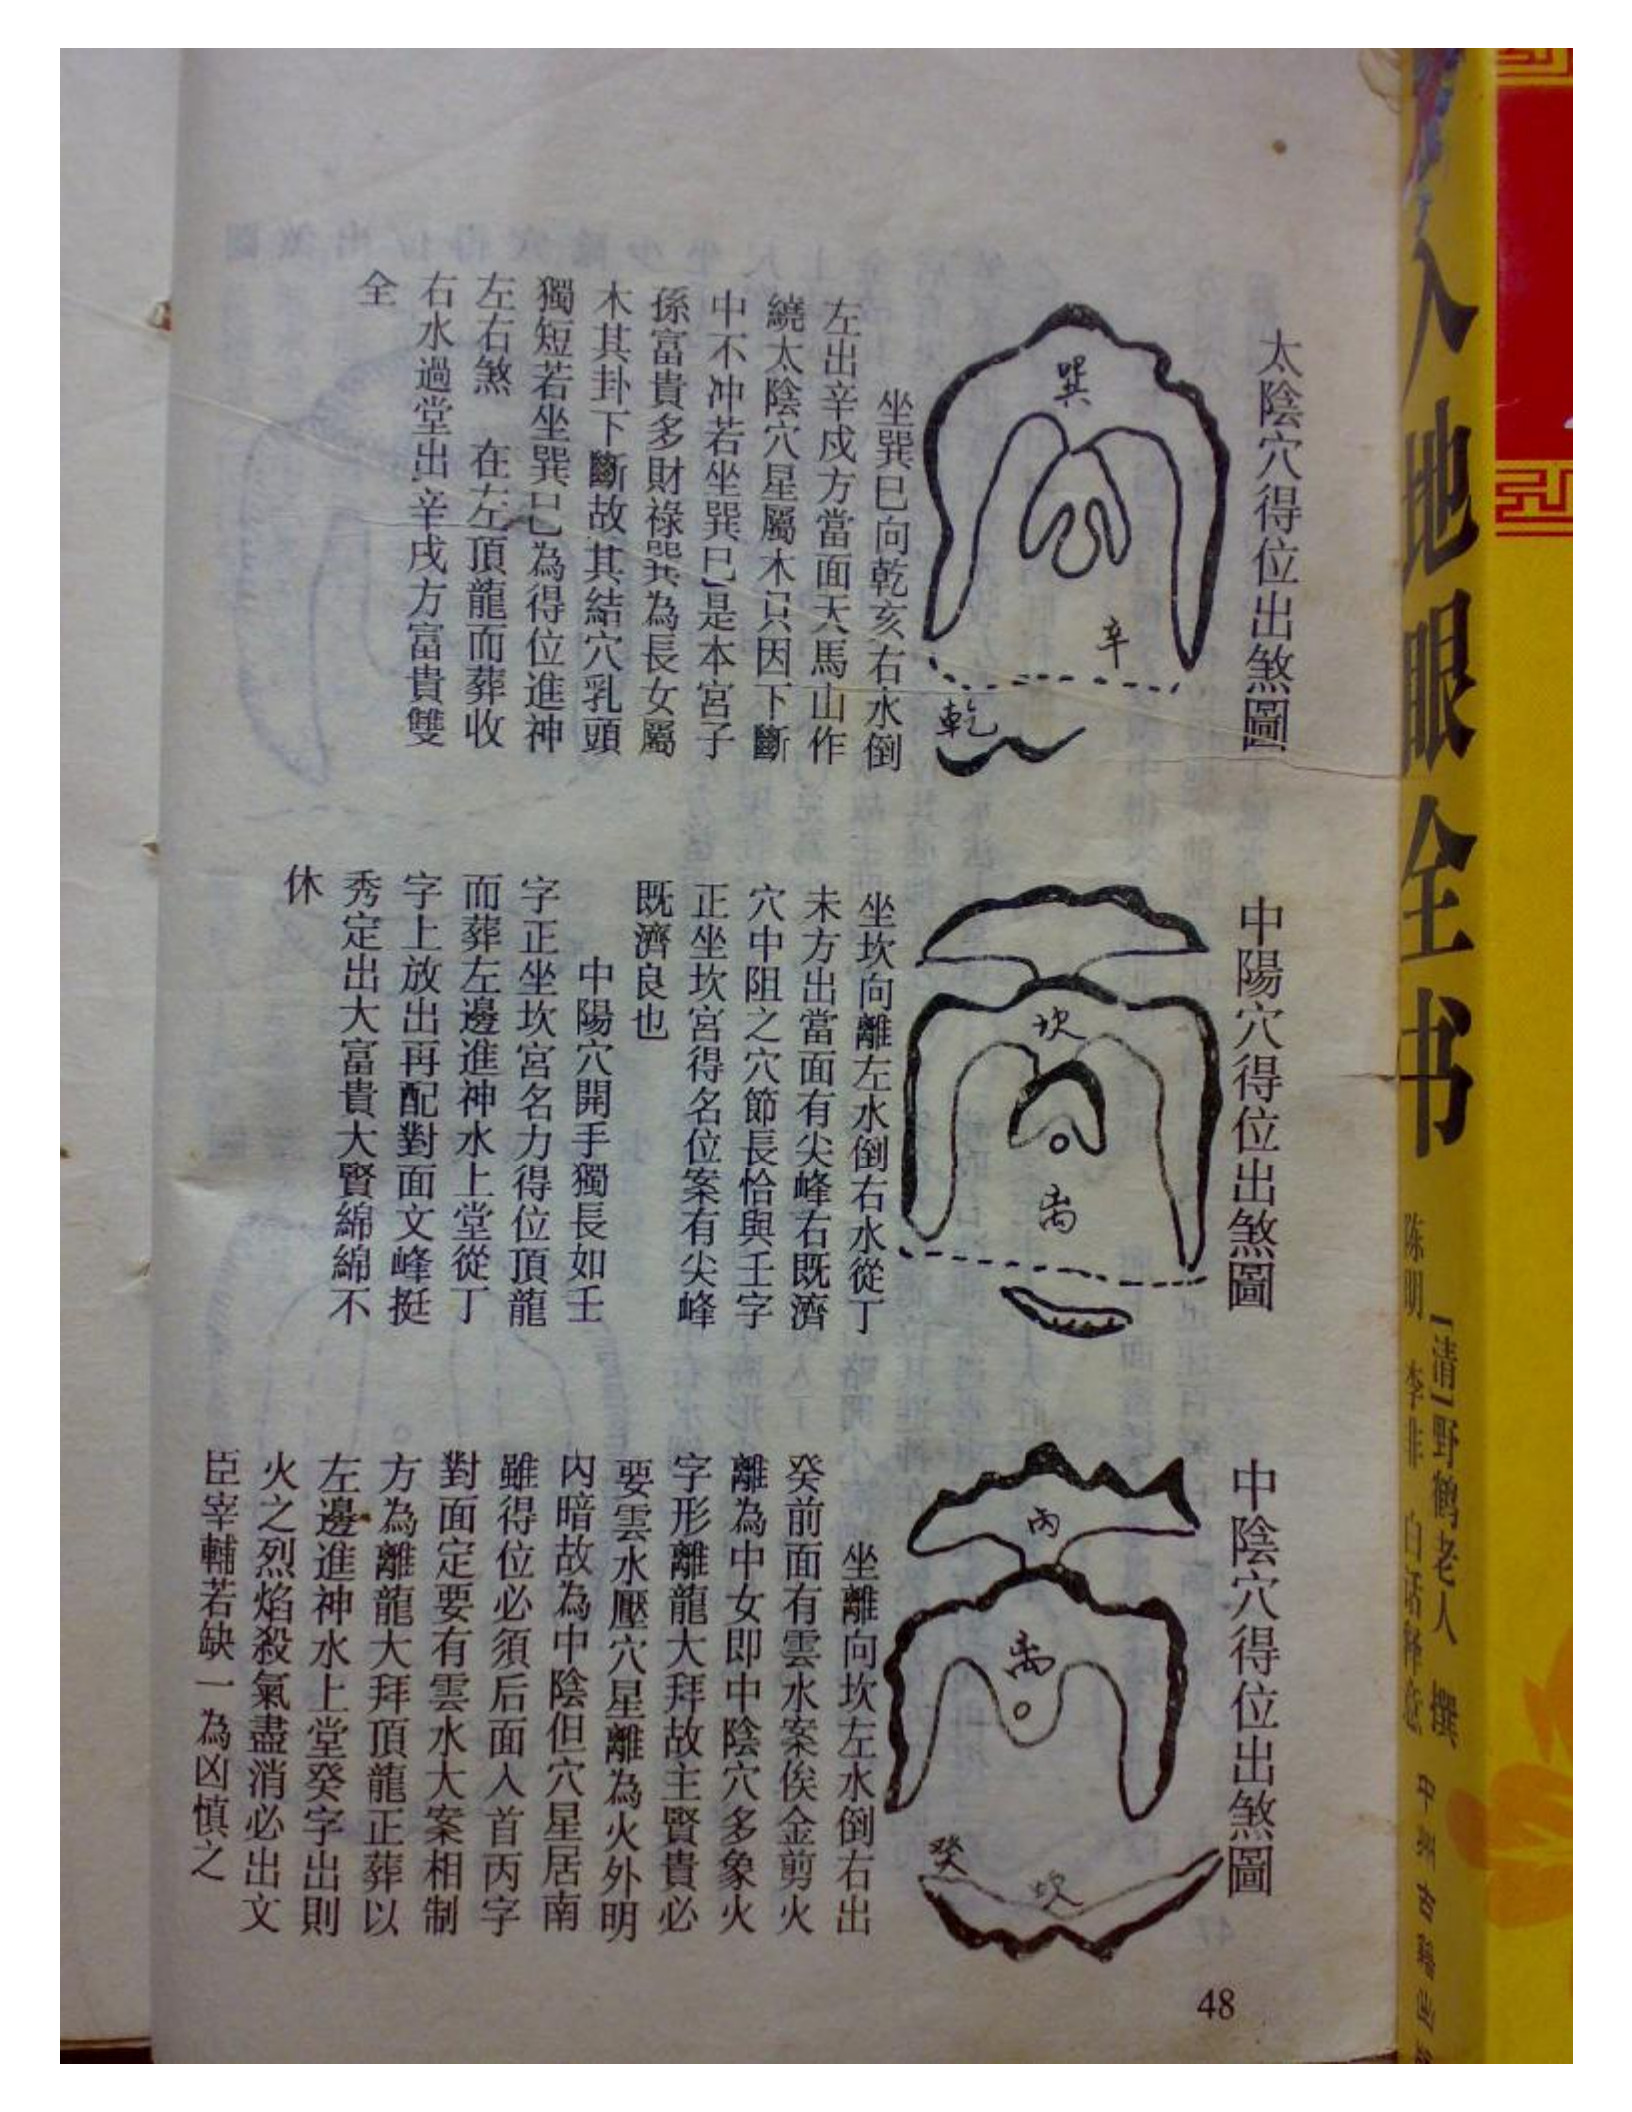 太陰穴得位出煞圖
巽
辛
乾
坐巽巳向乾亥右水倒
左出辛戍方當面天馬山作
繞太陰穴星屬木只因下斷
中不冲若坐巽巳是本宮子
孫富貴多財祿巽為長女屬
木其卦下斷故其結穴乳頭
獨短若坐巽巳為得位進神
左右煞　在左頂龍而葬收
右水過堂出辛戍方富貴雙
全
中陽穴得位出煞圖
坎
离
坐坎向離左水倒右水從丁
未方出當面有尖峰右既濟
穴中阻之穴節長恰與壬字
正坐坎宮得名位案有尖峰
既濟良也
中陽穴開手獨長如壬
字正坐坎宮名力得位頂龍
而葬左邊進神水上堂從丁
字上放出再配對面文峰挺
秀定出大富貴大賢綿綿不
休
中陰穴得位出煞圖
丙
离
癸
坎
坐離向坎左水倒右出
癸前面有雲水案俟金剪火
離為中女即中陰穴多象火
字形離龍大拜故主賢貴必
要雲水壓穴星離為火外明
內暗故為中陰但穴星居南
雖得位必須后面入首丙字
對面定要有雲水大案相制
方為離龍大拜頂龍正葬以
左邊進神水上堂癸字出則
火之烈焰殺氣盡消必出文
臣宰輔若缺一為凶慎之
48
人地眼全书
[清]野鹤老人 撰
陈明 李非 白话释意
中州古籍出